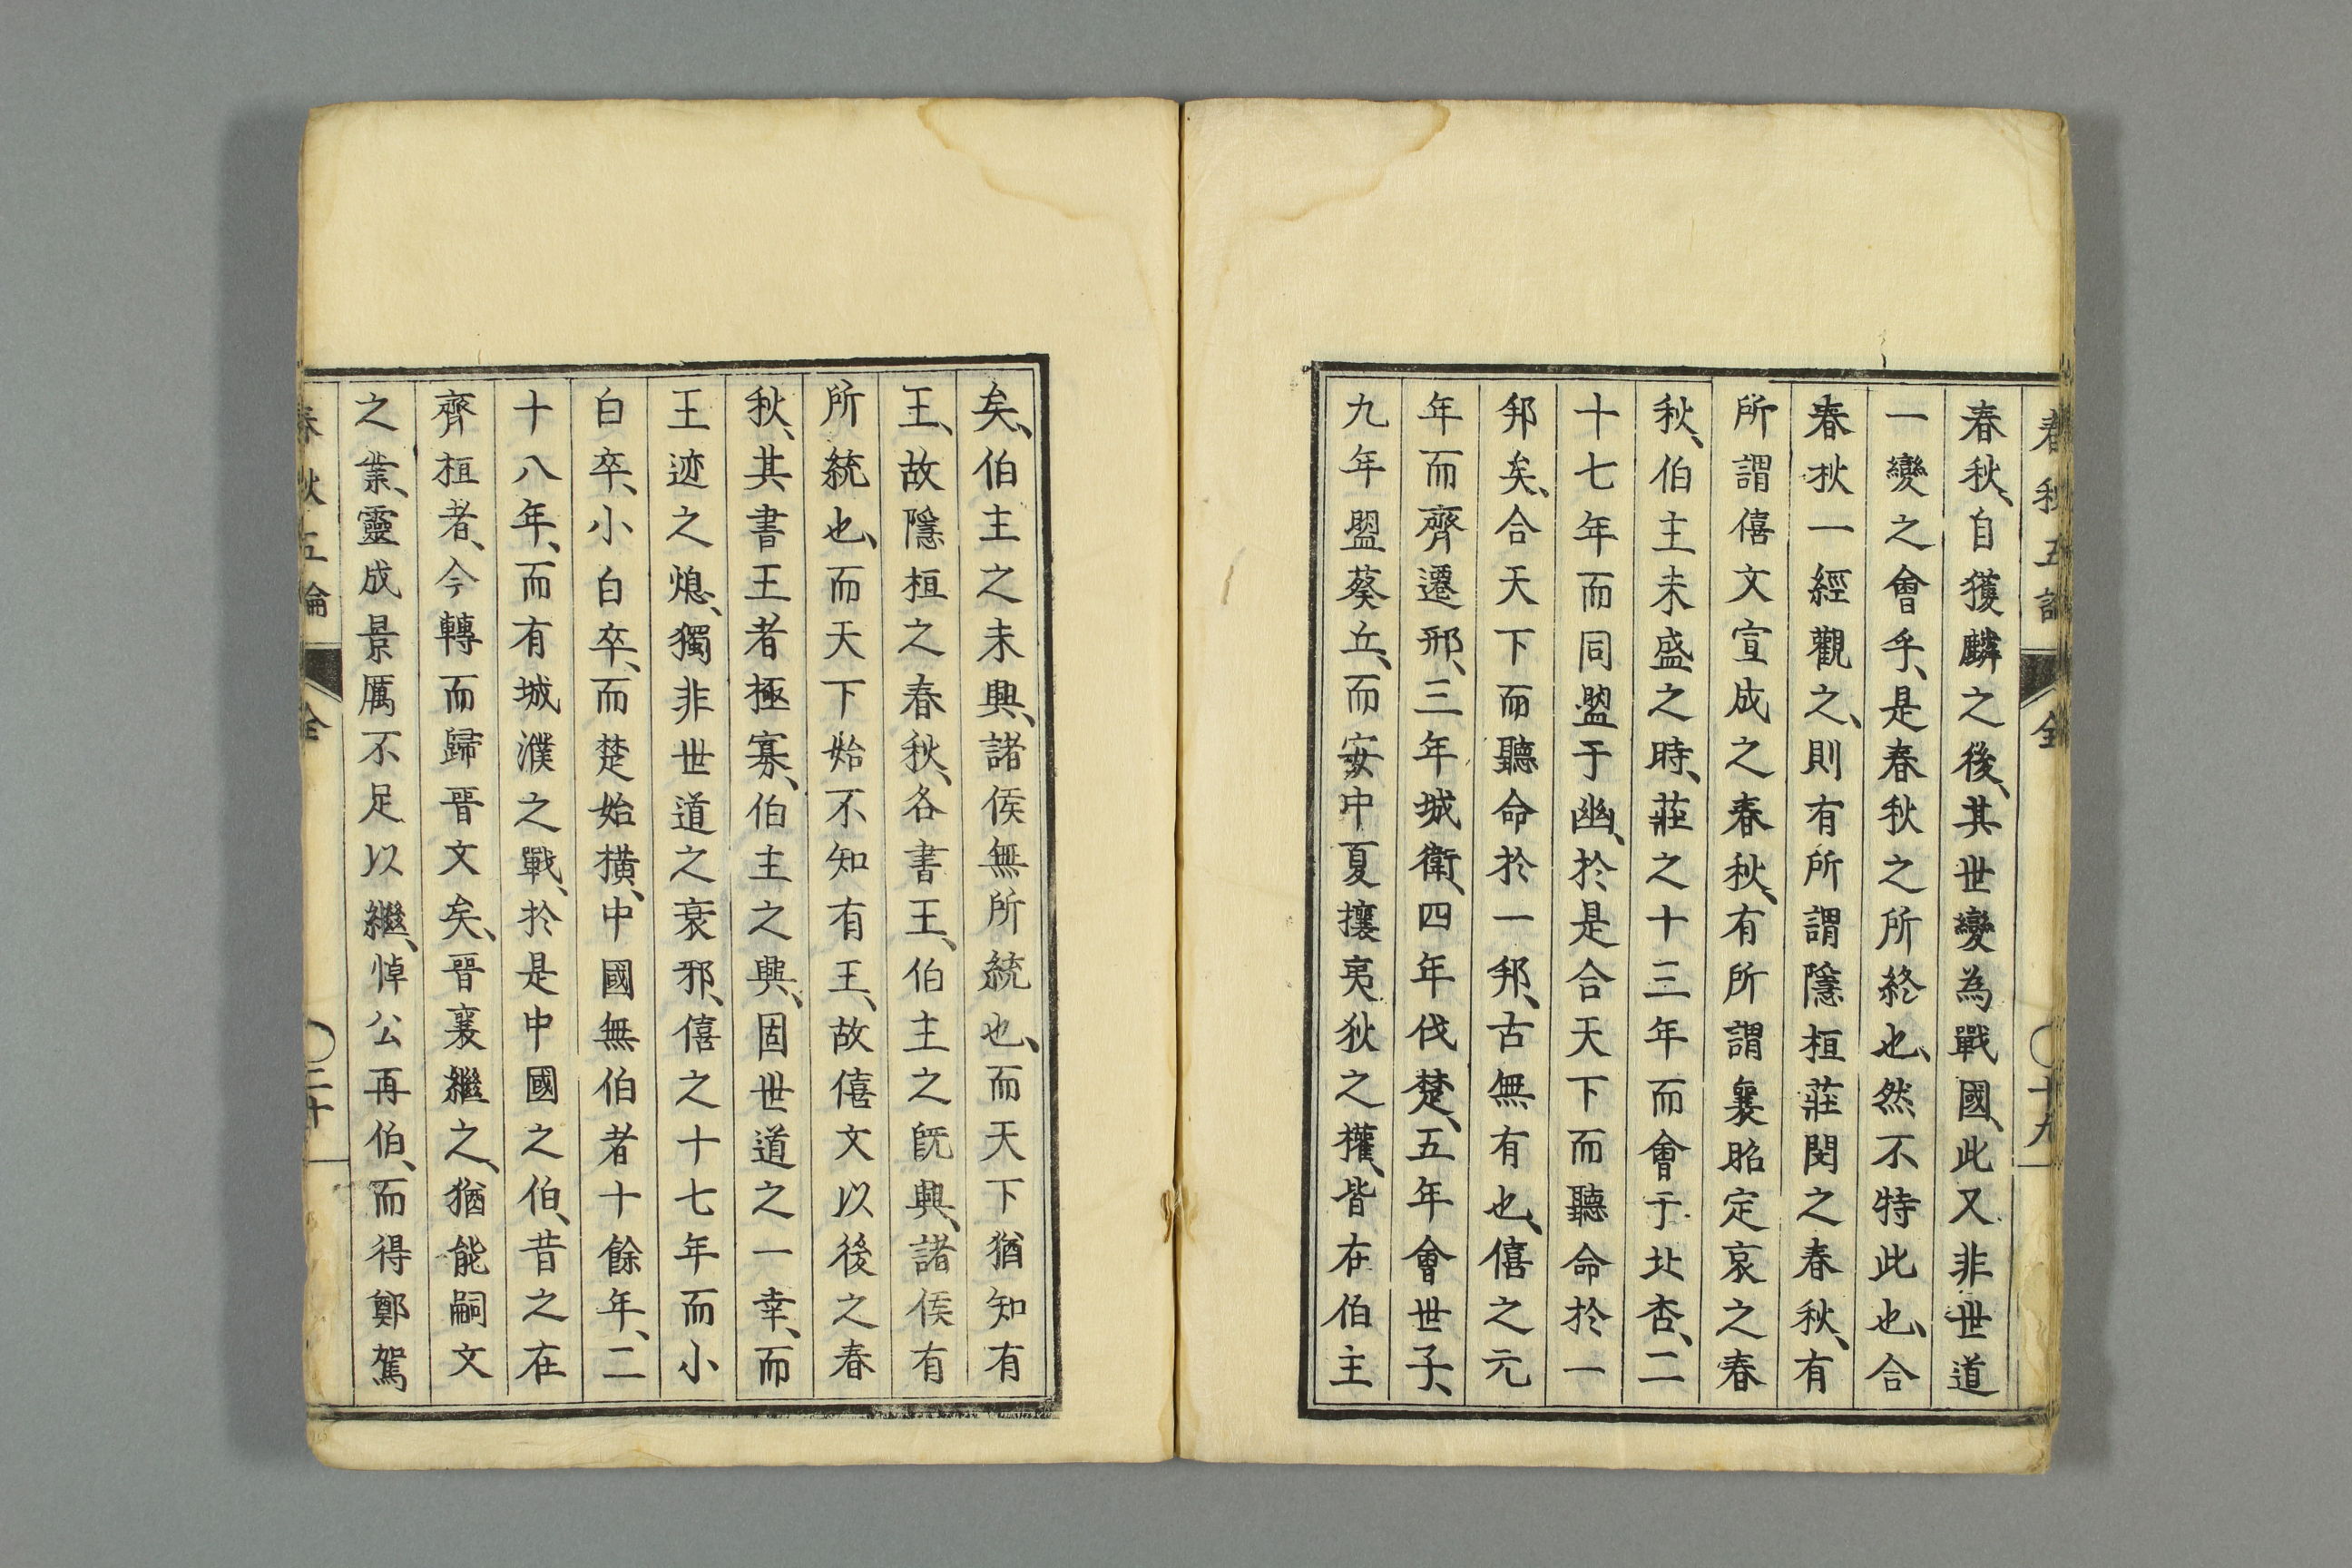 春秋五論 全 〇十九
春秋、自獲麟之後、其世變為戰國、此又非世道
一變之會乎、是春秋之所終也、然不特此也、合
春秋一經觀之、則有所謂隱桓莊閔之春秋、有
所謂僖文宣成之春秋、有所謂襄昭定哀之春
秋、伯主未盛之時、莊之十三年而會于北杏、二
十七年而同盟于幽、於是合天下而聽命於一
邦矣、合天下而聽命於一邦、古無有也、僖之元
年而齊遷邢、三年城衛、四年伐楚、五年會世子、
九年盟葵丘、而安中夏攘夷狄之權、皆在伯主
矣、伯主之未興、諸侯無所統也、而天下猶知有
王、故隱桓之春秋、各書王、伯主之既興、諸侯有
所統也、而天下始不知有王、故僖文以後之春
秋、其書王者極寡、伯主之興、固世道之一幸、而
王迹之熄、獨非世道之衰邪、僖之十七年而小
白卒、小白卒、而楚始横、中國無伯者十餘年、二
十八年、而有城濮之戰、於是中國之伯、昔之在
齊桓者、今轉而歸晉文矣、晉襄繼之、猶能嗣文
之業、靈成景厲不足以繼、悼公再伯、而得鄭駕
春秋五論 全 〇二十